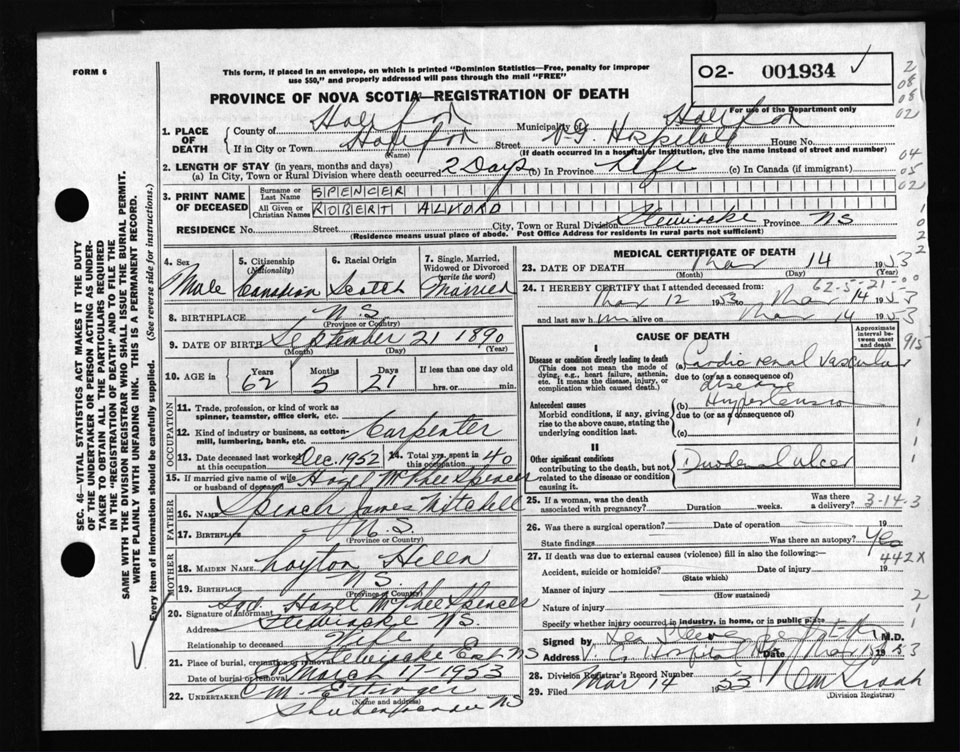 FORM 6
This form, if placed in an envelope, on which is printed "Dominion Statistics—Free, penalty for improper
use $50," and properly addressed will pass through the mail "FREE"
O2- 001934
For use of the Department only
PROVINCE OF NOVA SCOTIA—REGISTRATION OF DEATH
1. PLACE OF DEATH
County of Halifax Municipality of Halifax
If in City or Town Halifax Street V.G. Hospital House No.
(Name) (If death occurred in a hospital or institution, give the name instead of street and number)
2. LENGTH OF STAY (in years, months and days)
(a) In City, Town or Rural Division where death occurred 2 Days (b) In Province Life (c) In Canada (if immigrant)
3. PRINT NAME OF DECEASED
Surname or Last Name SPENCER
All Given or Christian Names ROBERT ALVORD
RESIDENCE No. Street City, Town or Rural Division Stewiacke Province NS
(Residence means usual place of abode. Post Office Address for residents in rural parts not sufficient)
4. Sex Male
5. Citizenship (Nationality) Canadian
6. Racial Origin Scotch
7. Single, Married, Widowed or Divorced (write the word) Married
8. BIRTHPLACE N.S.
(Province or Country)
9. DATE OF BIRTH September 21 1890
(Month) (Day) (Year)
10. AGE in Years 62 Months 5 Days 21 If less than one day old
hrs. or min.
OCCUPATION
11. Trade, profession, or kind of work as
spinner, teamster, office clerk, etc.
12. Kind of industry or business, as cotton-
mill, lumbering, bank, etc. Carpenter
13. Date deceased last worked at this occupation Dec. 1952 14. Total yrs. spent in this occupation 40
15. If married give name of wife or husband of deceased Hazel McPhee Spencer
FATHER
16. Name Spencer James Mitchell
17. Birthplace N.S.
(Province or Country)
MOTHER
18. MAIDEN NAME Layton Helen
19. BIRTHPLACE N.S.
(Province or Country)
20. Signature of informant sgd. Hazel McPhee Spencer
Address Stewiacke N.S.
Relationship to deceased Wife
21. Place of burial, cremation or removal Stewiacke East NS
Date of burial or removal March 17 1953
22. UNDERTAKER M. Ettinger
(Name and address)
Shubenacadie NS
MEDICAL CERTIFICATE OF DEATH
23. DATE OF DEATH Mar 14 1953
(Month) (Day) (Year)
62-5-21-0
24. I HEREBY CERTIFY that I attended deceased from:
Mar 12 1953 to Mar 14 1953
and last saw him alive on Mar 14 1953
CAUSE OF DEATH
Approximate interval between onset and death
I
Disease or condition directly leading to death
(This does not mean the mode of
dying, e.g., heart failure, asthenia,
etc. It means the disease, injury, or
complication which caused death.)
(a) Cardio renal vascular
due to (or as a consequence of)
disease
Antecedent causes
Morbid conditions, if any, giving
rise to the above cause, stating the
underlying condition last.
(b) Hypertension
due to (or as a consequence of)
(c)
II
Other significant conditions
contributing to the death, but not
related to the disease or condition
causing it
Duodenal ulcer
25. If a woman, was the death
associated with pregnancy? Duration weeks. Was there a delivery?
3-14-3
26. Was there a surgical operation? Date of operation 19
State findings Was there an autopsy? Yes
442X
27. If death was due to external causes (violence) fill in also the following:—
Accident, suicide or homicide? Date of injury 19
(State which)
Manner of injury
(How sustained)
Nature of injury
Specify whether injury occurred in industry, in home, or in public place
Signed by M.D.
Address V. G. Hospital Date Mar 1953
28. Division Registrar's Record Number
29. Filed Mar 14 1953
(Division Registrar)
SEC. 46—VITAL STATISTICS ACT MAKES IT THE DUTY
OF THE UNDERTAKER OR PERSON ACTING AS UNDER-
TAKER TO OBTAIN ALL THE PARTICULARS REQUIRED
IN THE "REGISTRATION OF DEATH" AND TO FILE THE
SAME WITH THE DIVISION REGISTRAR WHO SHALL ISSUE THE BURIAL PERMIT.
WRITE PLAINLY WITH UNFADING INK. THIS IS A PERMANENT RECORD.
Every item of information should be carefully supplied. (See reverse side for instructions.)
2
08
08
02
04
05
02
0
2
2
915
1
1
1
2
1